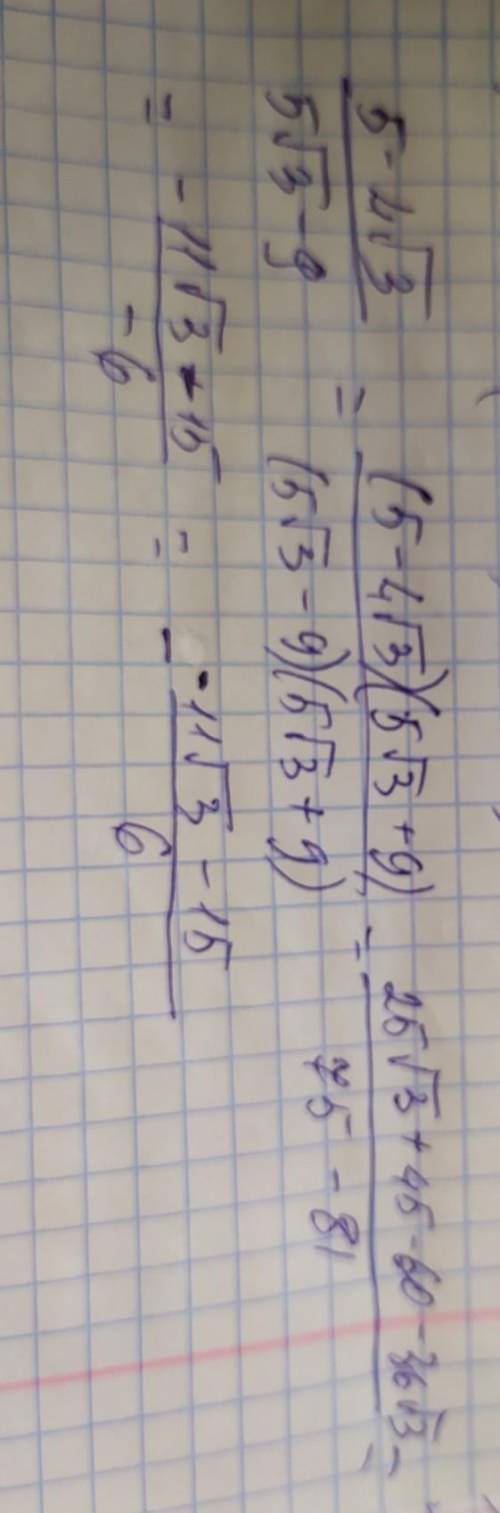 5-4√3 / 5√3-9 = (5-4√3)(5√3+9) / (5√3-9)(5√3+9) = 25√3+45-60-36√3 / 75-81 =
= -11√3-15 / -6 = - -11√3-15 / 6